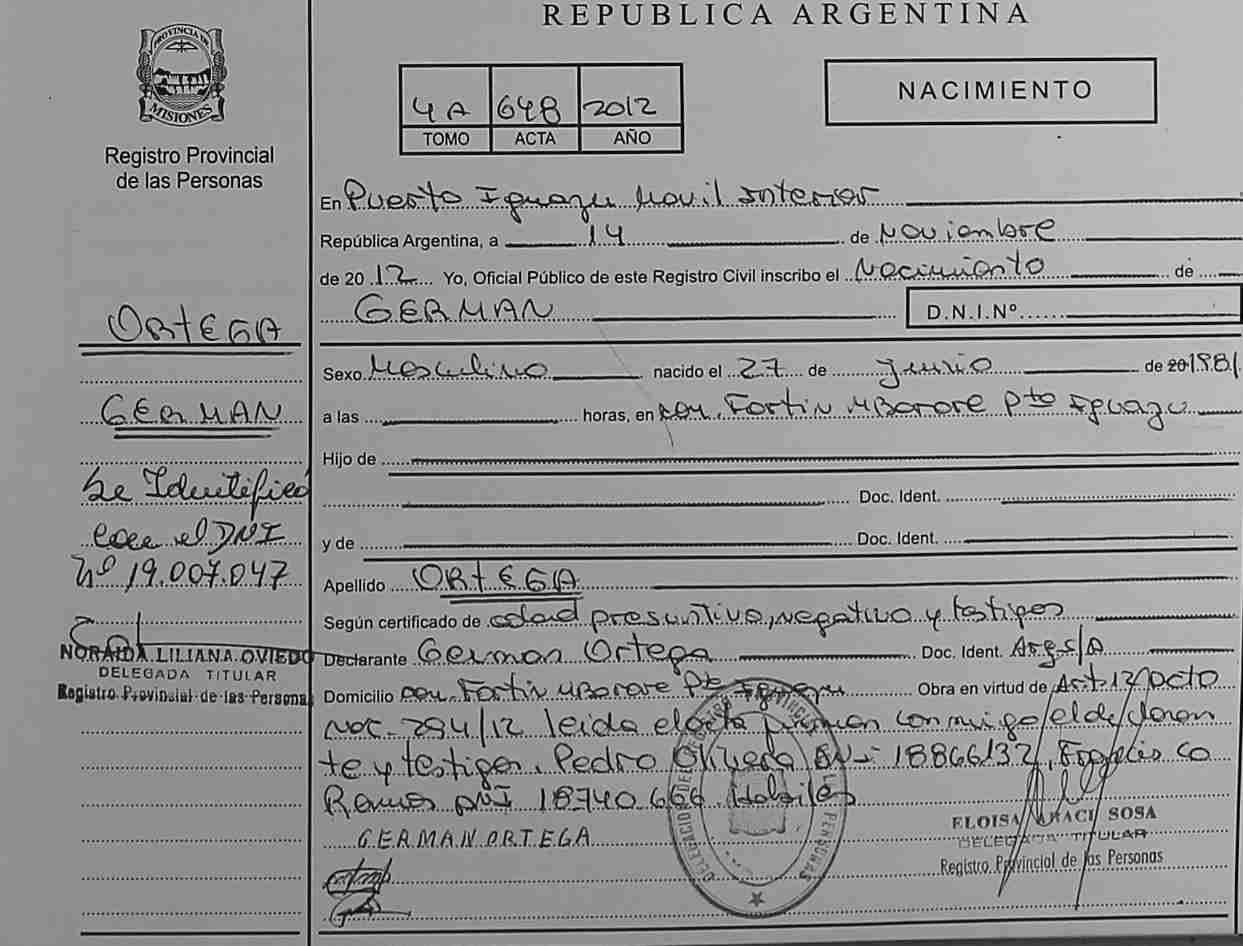 REPUBLICA ARGENTINA
PROVINCIA DE MISIONES
Registro Provincial
de las Personas
4A 648 2012
TOMO ACTA AÑO
NACIMIENTO
En Puerto Iguazu Movil Interior
República Argentina, a 14 de Noviembre
de 2012 Yo, Oficial Público de este Registro Civil inscribo el Nacimiento de
GERMAN D.N.I.Nº
Sexo Masculino nacido el 27 de Junio de 20 1981
a las horas, en com. Fortin MBorore Pto Iguazu
Hijo de
Doc. Ident.
y de Doc. Ident.
Apellido ORTEGA
Según certificado de edad presuntiva, negativo y testigos
Declarante German Ortega Doc. Ident. Arg S/D
Domicilio com. Fortin MBorore Pto Iguazu Obra en virtud de Art. 12 Dcto
Nac. 294/12 leida el acta firman conmigo el declaran
te y testigos. Pedro Olivera DNI 18866132, Francisco
Ramos DNI 18740666 Habiles
GERMAN ORTEGA
ELOISA ARACI SOSA
DELEGADA TITULAR
Registro Provincial de las Personas
ORTEGA
GERMAN
Se Identificó
con el DNI
Nº 19.007.047
NORAIDA LILIANA OVIEDO
DELEGADA TITULAR
Registro Provincial de las Personas